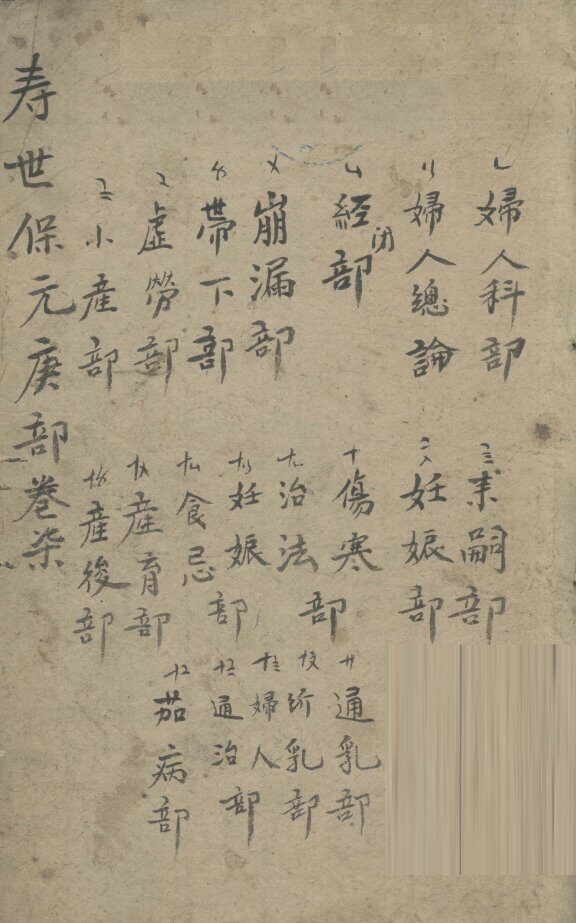 婦人科部
婦人總論
經閉部
崩漏部
帶下部
虛勞部
小產部
求嗣部
妊娠部
傷寒部
治法
妊娠部
食忌
產育部
產後部
通乳部
乳部
婦人
通治部
茄病部
寿世保元庚部卷柒